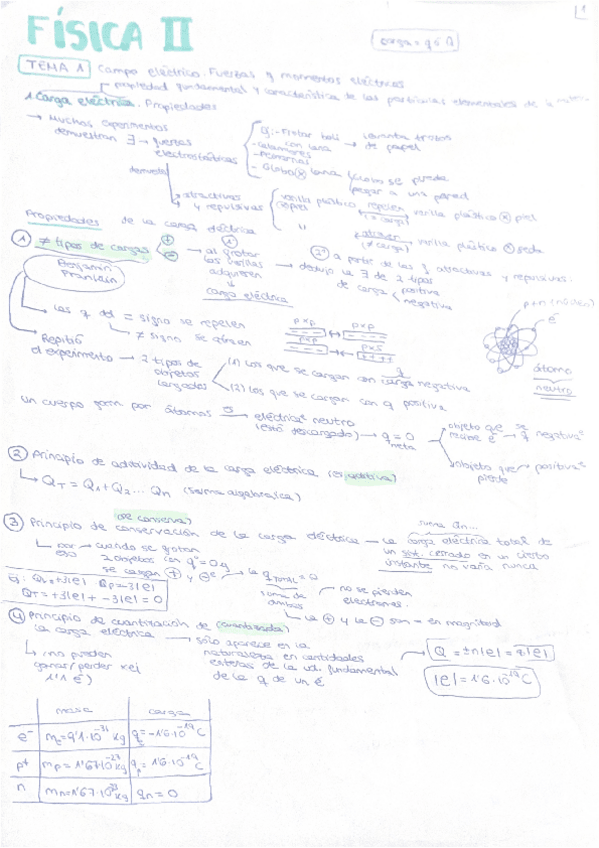 FÍSICA II
1
carga = q ó Q
TEMA 1 Campo eléctrico. Fuerzas y momentos eléctricos
propiedad fundamental y característica de las partículas elementales de la materia
1. Carga eléctrica. Propiedades
→ Muchos experimentos demuestran ∃ → fuerzas electrostáticas
Ej: - Frotar boli con lana → levanta trozos de papel
- Calamares
- Globo ⊗ lana
como se puede pegar a una pared
demuestra
atractivas y repulsivas
varilla plástico ⊗ piel repelen (= carga) varilla plástico ⊗ piel
" atraen (≠ carga) varilla plástico ⊗ seda
Propiedades de la carga eléctrica
① ≠ tipos de cargas + −
Benjamin Franklin
1º al frotar las varillas adquirían carga eléctrica
2º a partir de las f atractivas y repulsivas.
→ dedujo la ∃ de 2 tipos de carga positiva negativa
Las q del = signo se repelen
≠ signo se atraen
pxp pxp
pxp pxs
p+n (núcleo)
é
átomo neutro
Repitió el experimento → 2 tipos de objetos cargados
(1) Los que se cargan con carga negativa
(2) Los que se cargan con q positiva
Un cuerpo form por átomos es eléctricᵃ neutro (está descargado) → q neta = 0
objeto que se recibe é → q negativa
objeto que pierde positiva
② Principio de aditividad de la carga eléctrica (es aditiva)
→ QT = Q1 + Q2 ... Qn (suma algebraica)
(se conserva)
③ Principio de conservación de la carga eléctrica → La carga eléctrica total de un sist. cerrado en un cierto instante no varía nunca
suma
por eso → cuando se frotan 2 objetos con q = 0 se cargan + y −
la q TOTAL = 0
suma de ambos
no se pierden electrones.
la + y la − son = en magnitud
Ej: Qa = +3|e| Qb = -3|e|
QT = +3|e| + -3|e| = 0
④ Principio de cuantización de la carga eléctrica (cuantizada)
→ no pueden ganar/perder x ej 1'1 é)
→ sólo aparece en la naturaleza en cantidades enteras de la ud. fundamental de la q de un é
Q = ±n|e| = q|e|
|e| = 1'6·10⁻¹⁹ C
masa carga
e⁻ me = 9'1·10⁻³¹ kg qe = -1'6·10⁻¹⁹ C
p⁺ mp = 1'67·10⁻²⁷ kg qp = 1'6·10⁻¹⁹ C
n mn = 1'67·10⁻²⁷ kg qn = 0